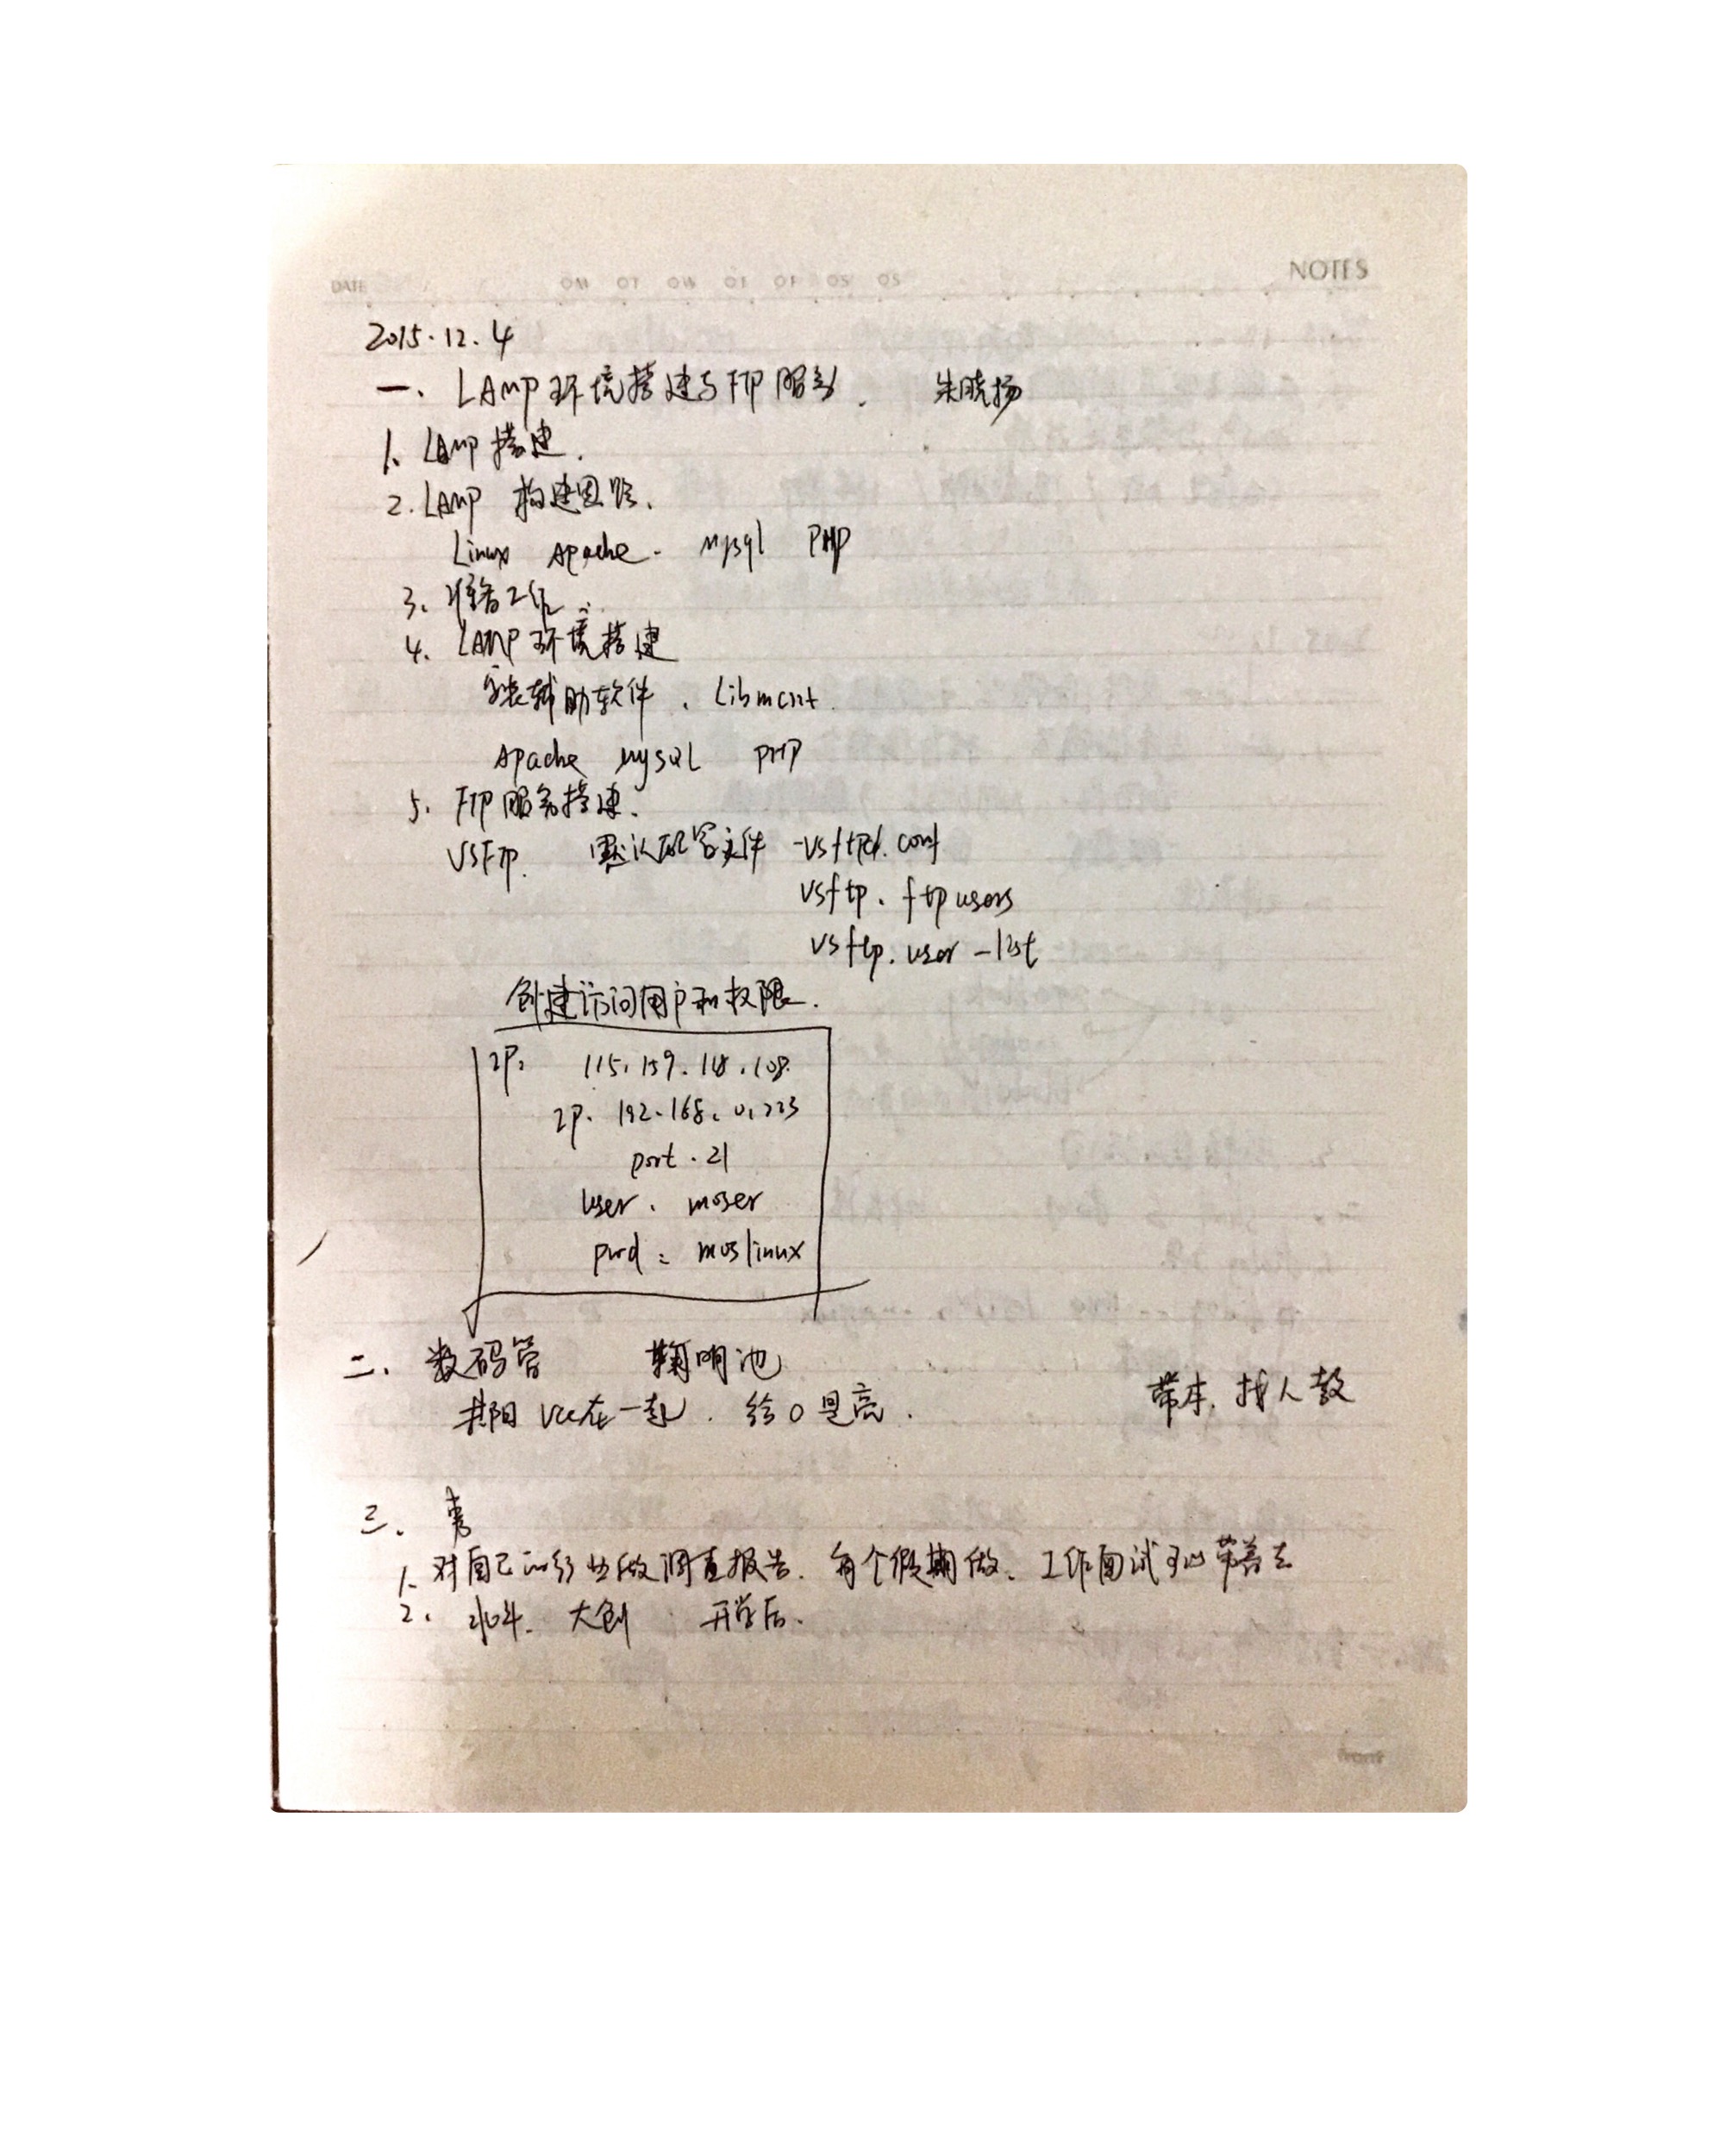 DATE
NOTES
2015.12.4
一、LAMP环境搭建与FTP服务. 朱晓扬
1. LAMP搭建.
2. LAMP 构建思路.
Linux Apache. Mysql PHP
3. 准备工作
4. LAMP环境搭建
安装辅助软件. Libmcrt
Apache MySQL PHP
5. FTP服务搭建.
VSFTP. 默认配置文件 -vsftpd.conf
vsftp.ftpusers
vsftp.user-list
创建访问用户和权限.
IP: 115.159. .108
IP. 192.168.0.223
port. 21
user. moser
pwd: moslinux
二、数码管 鞠明池
共阳 Vcc在一起. 给0是亮. 带本, 找人教
三、
1. 对自己的行业做调查报告. 有个假期做. 工作面试可以带着去
2. 大创 开学后.